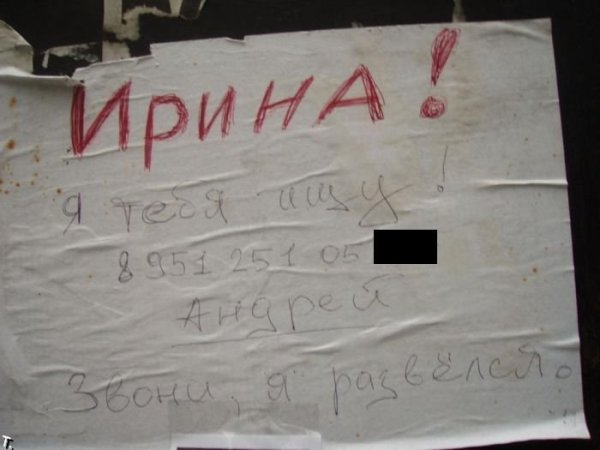 ИРИНА!
Я тебя ищу!
8 951 251 05
Андрей
Звони, я развёлся.
т.